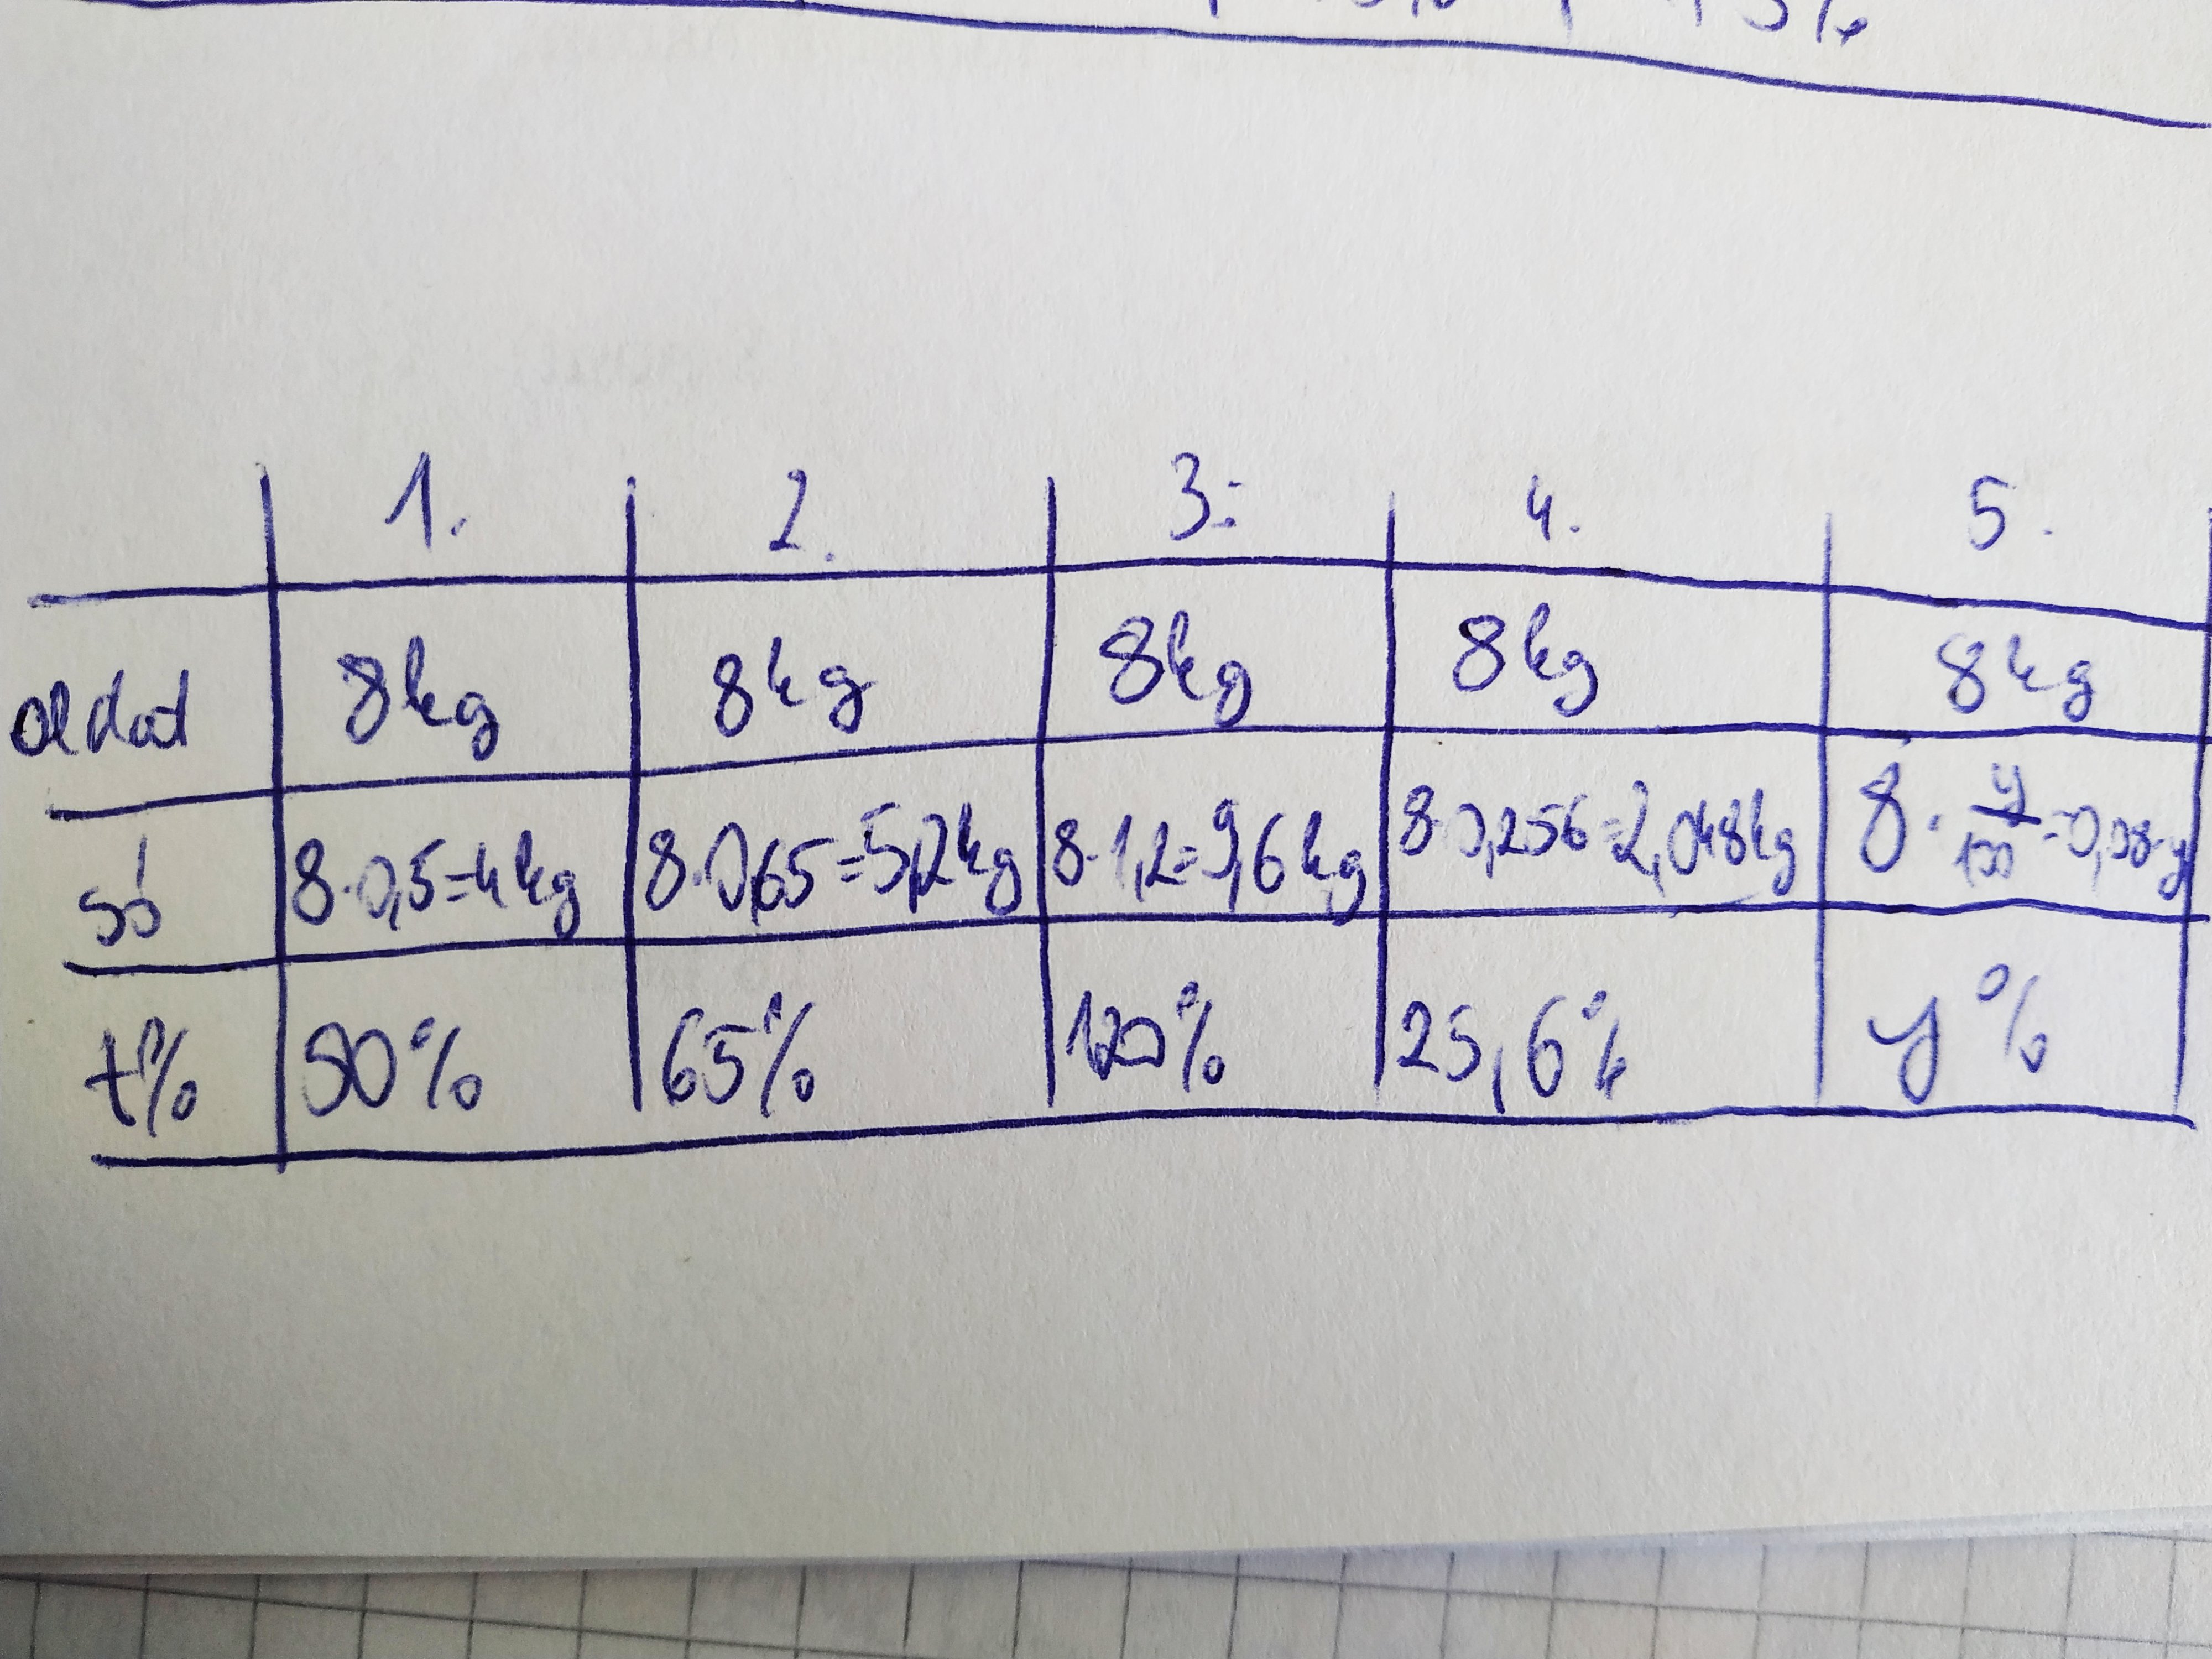 1. 2. 3: 4. 5.
oldat 8kg 8kg 8kg 8kg 8kg
só 8·0,5=4kg 8·0,65=5,2kg 8·1,2=9,6kg 8·0,256=2,048kg 8·y/100=0,08·y
t% 50% 65% 120% 25,6% y%